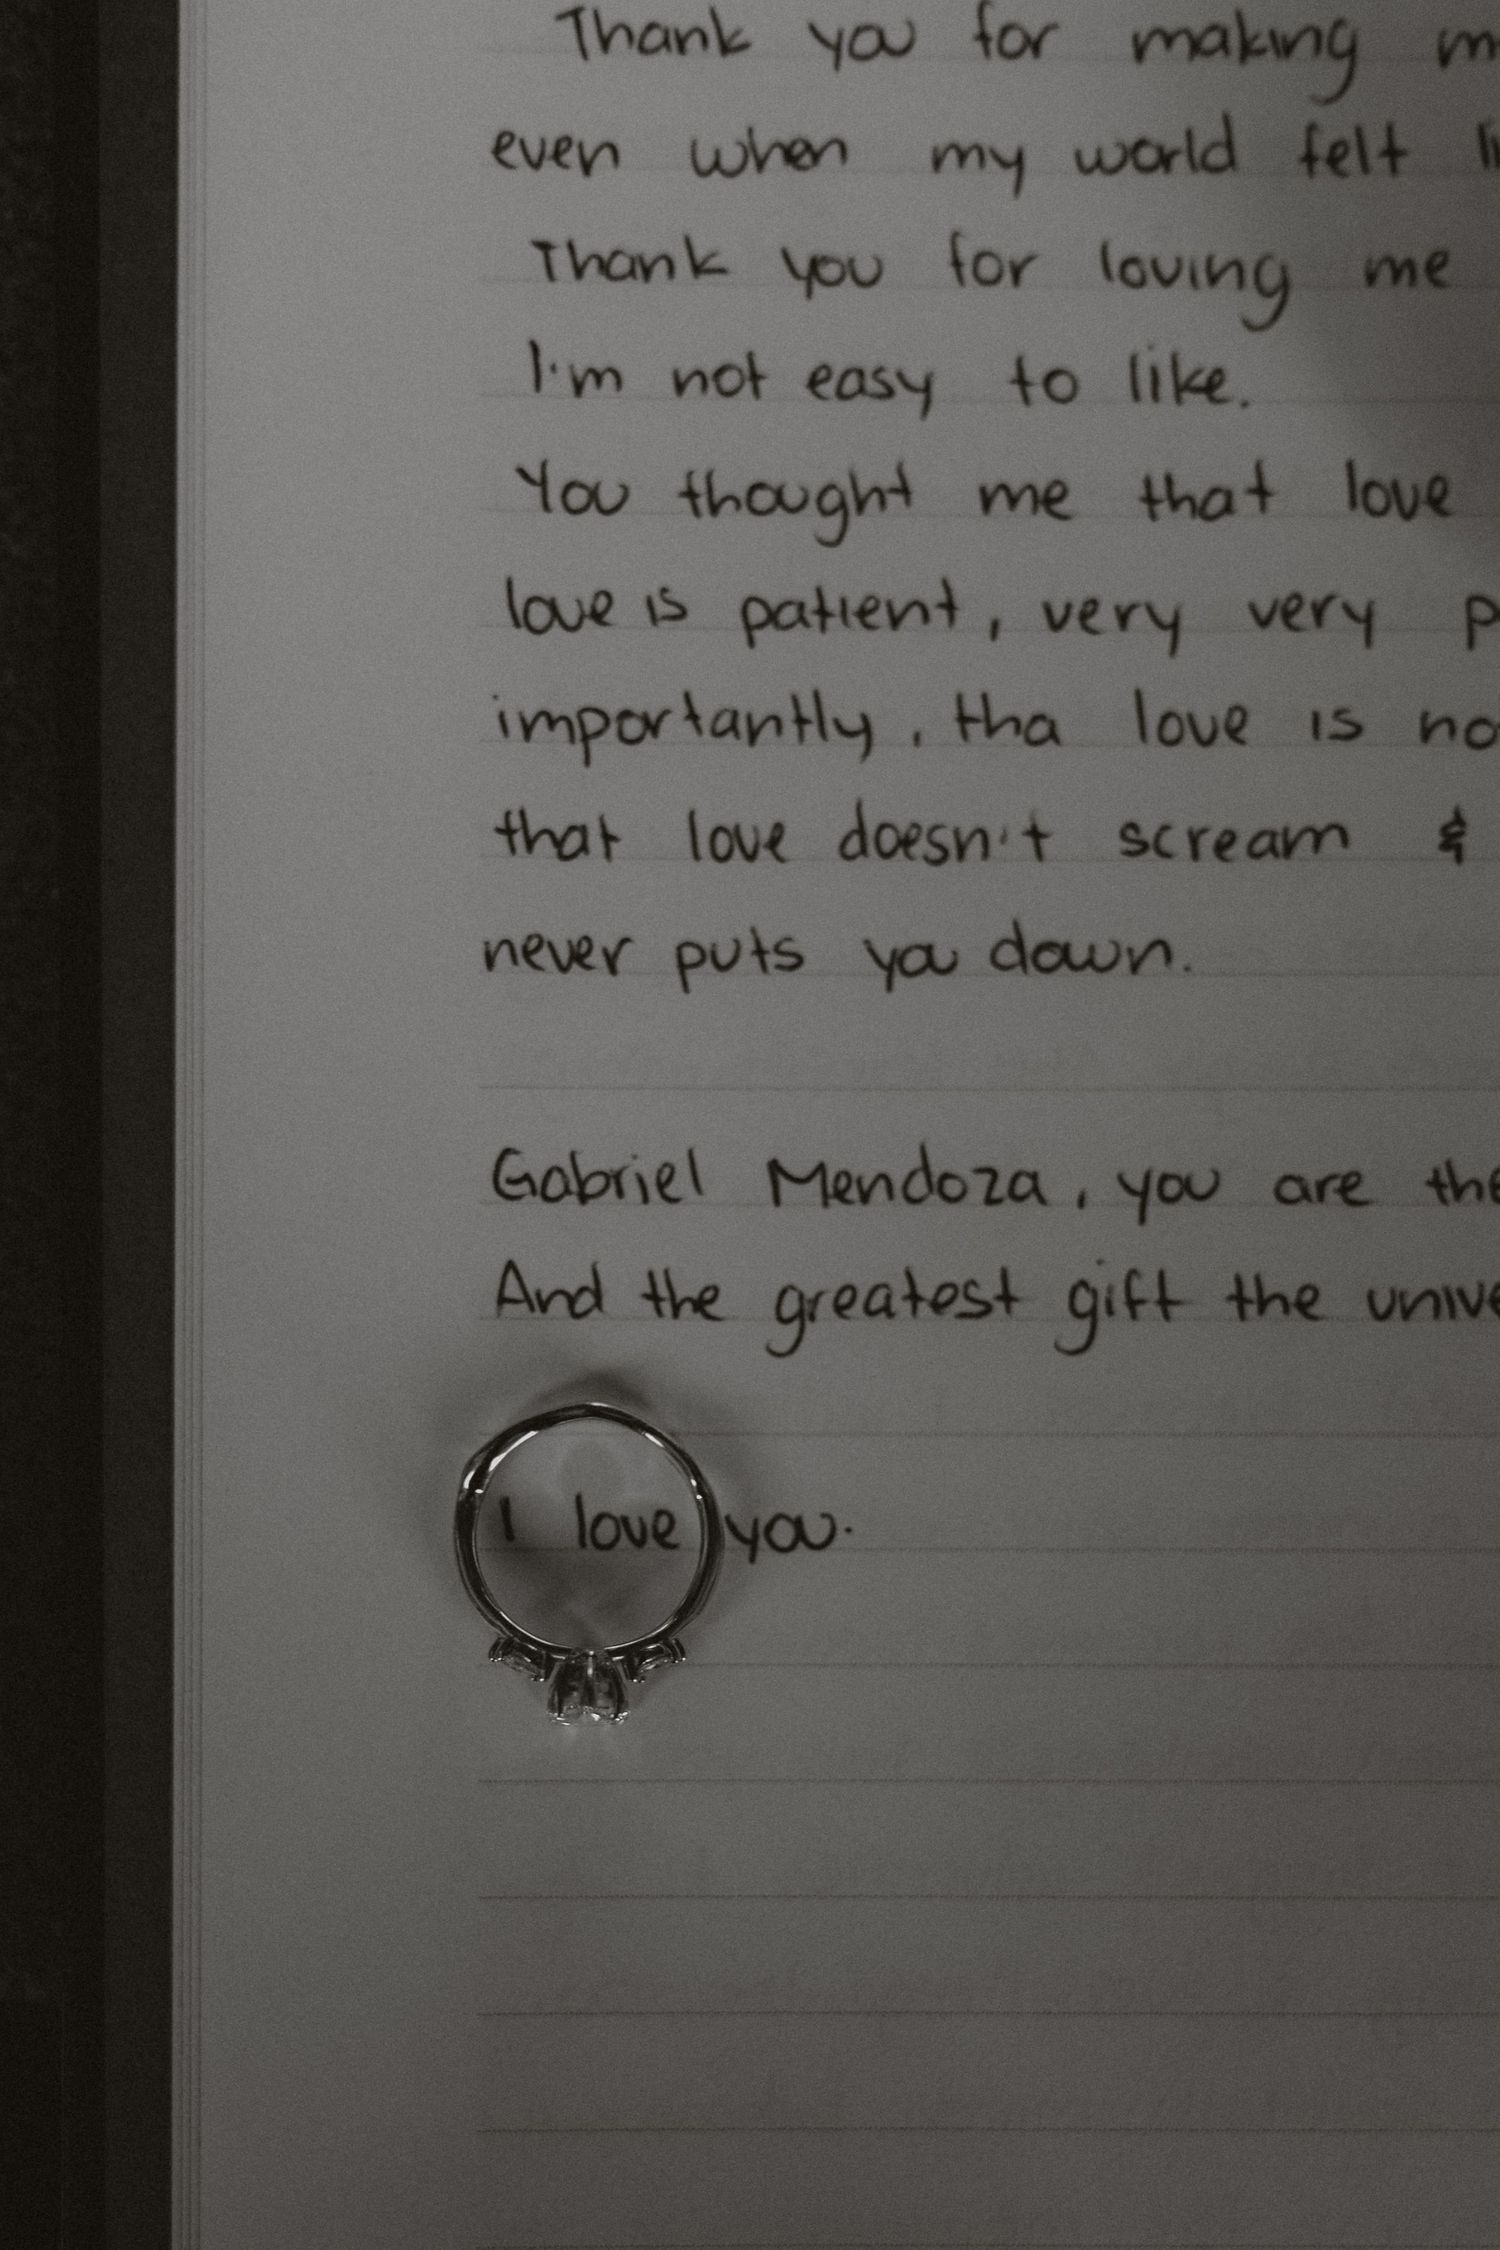 Thank you for making
even when my world felt
Thank you for loving me
I'm not easy to like.
You thought me that love
love is patient, very very
importantly, tha love is
that love doesn't scream &
never puts you down.
Gabriel Mendoza, you are the
And the greatest gift the
I love you.